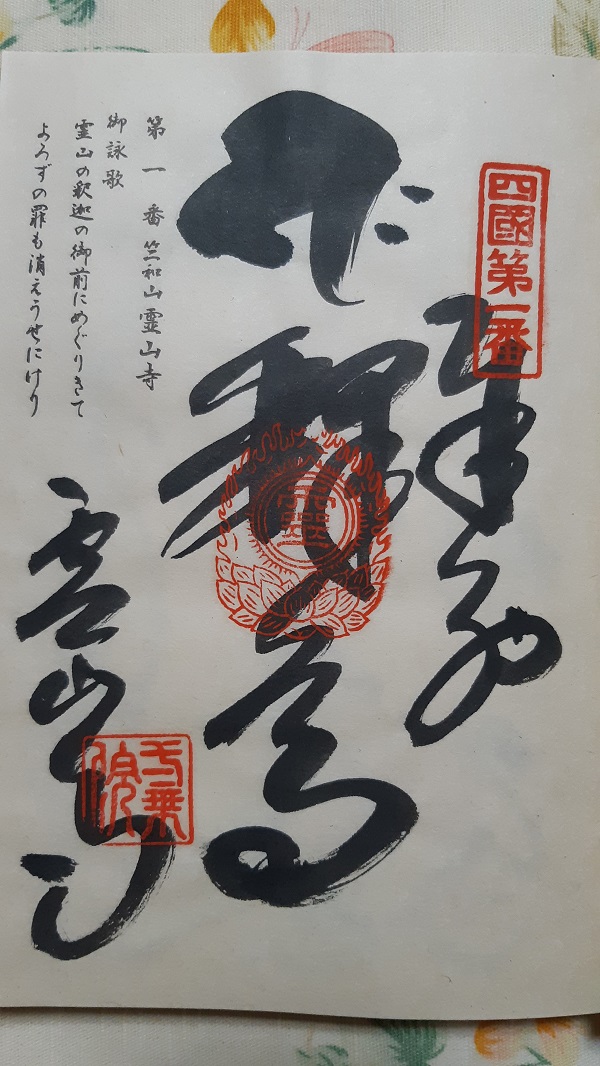 四國第一番
奉納
靈
第一番 竺和山霊山寺
御詠歌
霊山の釈迦の御前にめぐりきて
よろずの罪も消えうせにけり
霊山寺